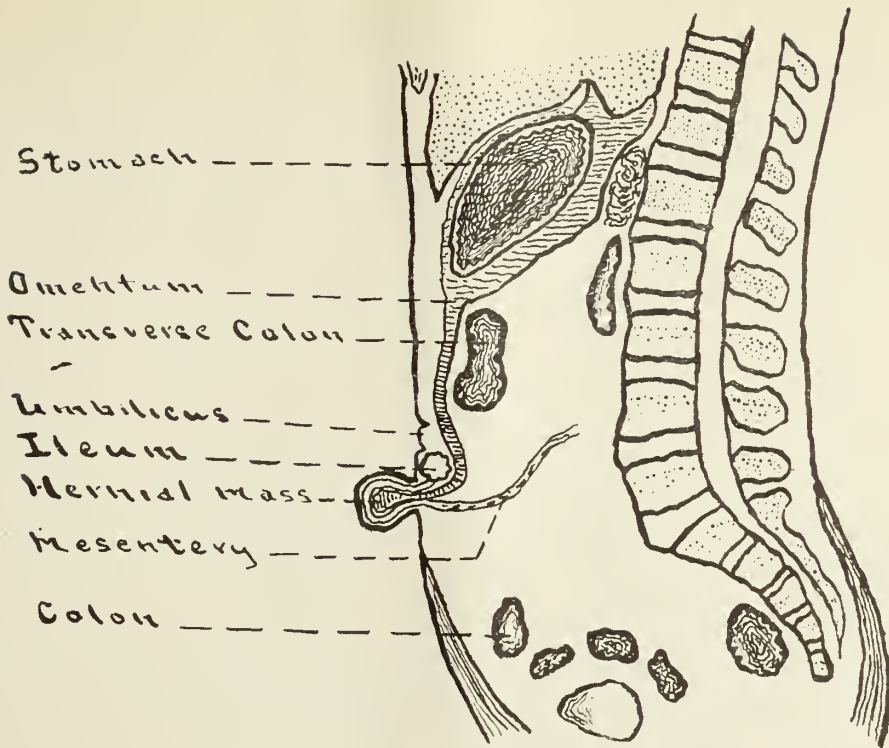 Stomach
Omentum
Transverse Colon
Umbilicus
Ileum
Hernial mass
Mesentery
Colon